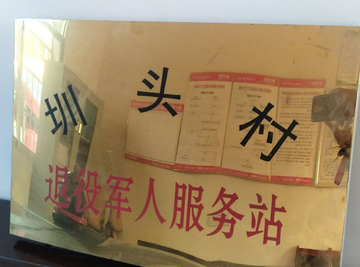 圳头村
退役军人服务站